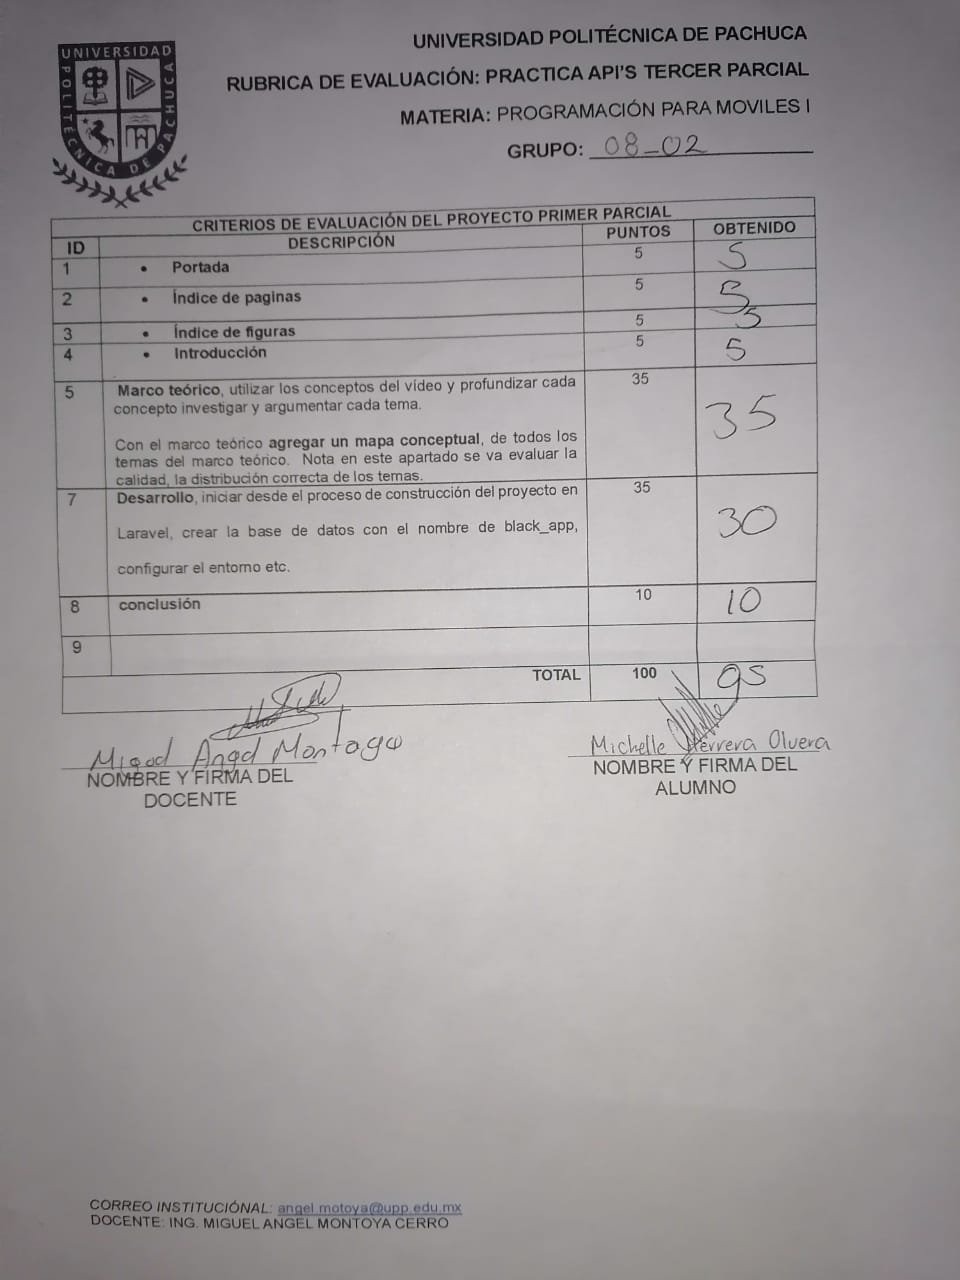 UNIVERSIDAD POLITÉCNICA DE PACHUCA
UNIVERSIDAD POLITÉCNICA DE PACHUCA
RUBRICA DE EVALUACIÓN: PRACTICA API'S TERCER PARCIAL
MATERIA: PROGRAMACIÓN PARA MOVILES I
GRUPO: 08_02
CRITERIOS DE EVALUACIÓN DEL PROYECTO PRIMER PARCIAL
ID DESCRIPCIÓN PUNTOS OBTENIDO
1 • Portada 5 5
2 • Índice de paginas 5 5
3 • Índice de figuras 5 5
4 • Introducción 5 5
5 Marco teórico, utilizar los conceptos del vídeo y profundizar cada 35 35
concepto investigar y argumentar cada tema.
Con el marco teórico agregar un mapa conceptual, de todos los
temas del marco teórico. Nota en este apartado se va evaluar la
calidad, la distribución correcta de los temas.
7 Desarrollo, iniciar desde el proceso de construcción del proyecto en 35 30
Laravel, crear la base de datos con el nombre de black_app,
configurar el entorno etc.
8 conclusión 10 10
9
TOTAL 100 95
Miguel Angel Montoya
NOMBRE Y FIRMA DEL
DOCENTE
Michelle Herrera Olvera
NOMBRE Y FIRMA DEL
ALUMNO
CORREO INSTITUCIÓNAL: angel.motoya@upp.edu.mx
DOCENTE: ING. MIGUEL ANGEL MONTOYA CERRO